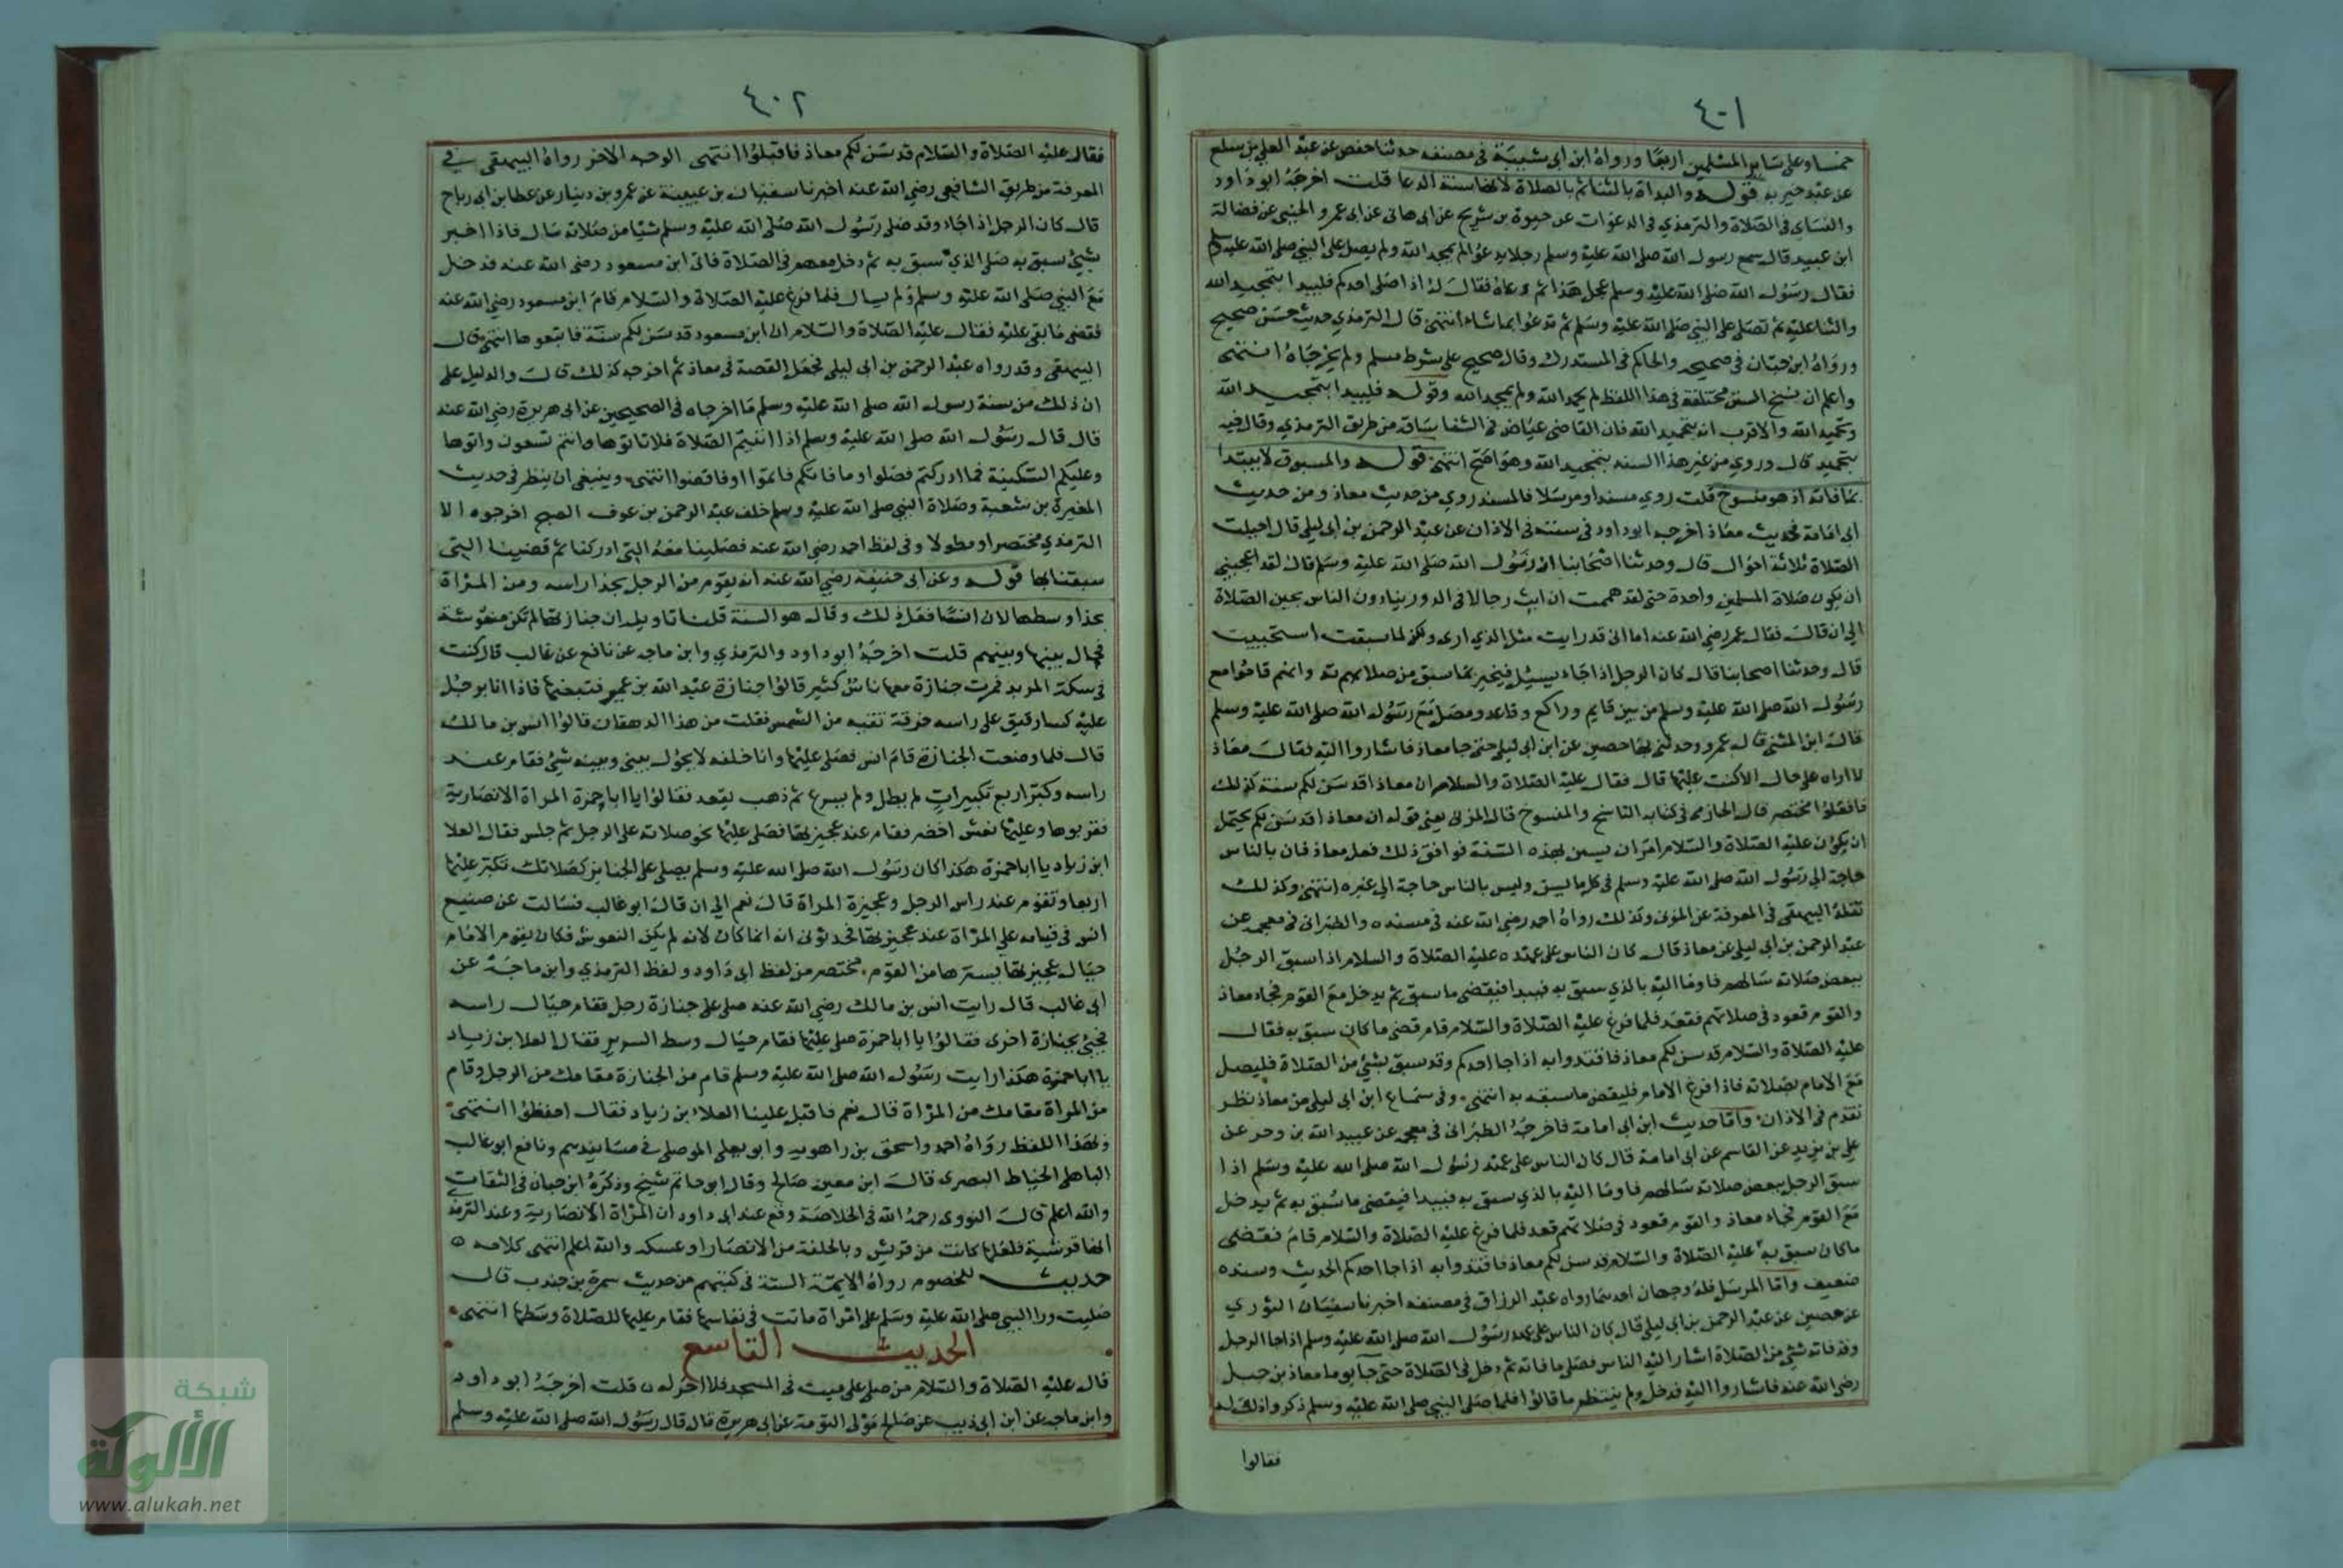 ٤٠١
خمسا وعلى ساير المسلمين اربعا ورواه ابن ابي شيبة في مصنفه حدثنا حفص عن عبد الملك بن سلع
عن عبد خير به قوله والبداة بالثنا ثم بالصلاة لانها سنة الدعا قلت اخرجه ابو داود
والنساي في الصلاة والترمذي في الدعوات عن حيوة بن شريح عن ابي هاني عن ابي عمرو الجنبي عن فضالة
ابن عبيد قال سمع رسول الله صلى الله عليه وسلم رجلا يدعو لم يمجد الله ولم يصل على النبي صلى الله عليه وسلم
فقال رسول الله صلى الله عليه وسلم عجل هذا ثم دعاه فقال له اذا صلى احدكم فليبدا بتمجيد الله
والثنا عليه ثم تصلى على النبي صلى الله عليه وسلم ثم تدعوا بما شاء انتهى قال الترمذي حديث حسن صحيح
ورواه ابن حبان في صحيحه والحاكم في المستدرك وقال صحيح على شرط مسلم ولم يخرجاه انتهى
واعلم ان نسخ السنن مختلفة في هذا اللفظ لم يحمد الله ولم يمجد الله وقوله فليبدا بتمجيد الله
وبتحميد الله والاقرب انه بتحميد الله فان القاضي عياض في الشفا ساقه من طريق الترمذي وقال فيه
بتحميد قال وروي من غير هذا السند بتمجيد الله وهو اصح انتهى قوله والمسبوق لا يبتدا
بما فاته اذ هو منسوخ قلت روي مسندا ومرسلا فالمسند روي من حديث معاذ ومن حديث
ابي امامة فحديث معاذ اخرجه ابو داود في سننه في الاذان عن عبد الرحمن بن ابي ليلى قال احيلت
الصلاة ثلاثة احوال قال وحدثنا اصحابنا ان رسول الله صلى الله عليه وسلم قال لقد اعجبني
ان يكون صلاة المسلمين واحدة حتى لقد هممت ان ابث رجالا في الدور ينادون الناس بحين الصلاة
الى ان قال فقال عمر رضي الله عنه اما اني قد رايت مثل الذي ارى ولكن لما سبقت استحييت
قال وحدثنا اصحابنا قال كان الرجل اذا جاء يسئل فيخبر بما سبق من صلاتهم وانهم قاموا مع
رسول الله صلى الله عليه وسلم من بين قايم وراكع وقاعد ومصل مع رسول الله صلى الله عليه وسلم
قال ابن المثنى قال عمرو وحدثني بها حصين عن ابن ابي ليلى حتى جا معاذ فاشاروا اليه فقال معاذ
لا اراه على حال الا كنت عليها قال فقال عليه الصلاة والسلام ان معاذا قد سن لكم سنة كذلك
فافعلوا مختصر قال الحازمي في كتابه الناسخ والمنسوخ قال المزني يعني قوله ان معاذا قد سن لكم يحتمل
ان يكون عليه الصلاة والسلام امر ان يسن بهذه السنة فوافق ذلك فعل معاذ فان بالناس
حاجة الى رسول الله صلى الله عليه وسلم في كل ما يسن وليس بالناس حاجة الى غيره انتهى وكذلك
نقله البيهقي في المعرفة عن المزني وكذلك رواه احمد رضي الله عنه في مسنده والطبراني في معجمه عن
عبد الرحمن بن ابي ليلى عن معاذ قال كان الناس على عهده عليه الصلاة والسلام اذا سبق الرجل
ببعض صلاته سالهم فاوما اليه بالذي سبق به فيبدا فيقضي ما سبق ثم يدخل مع القوم فجاء معاذ
والقوم قعود في صلاتهم فقعد فلما فرغ عليه الصلاة والسلام قام قضى ما كان سبق به فقال
عليه الصلاة والسلام قد سن لكم معاذ فاقتدوا به اذا جا احدكم وقد سبق بشئ من الصلاة فليصل
مع الامام بصلاته فاذا فرغ الامام فليقض ما سبقه به انتهى وفي سماع ابن ابي ليلى من معاذ نظر
تقدم في الاذان واما حديث ابن ابي امامة فاخرجه الطبراني في معجمه عن عبيد الله بن زحر عن
علي بن يزيد عن القاسم عن ابي امامة قال كان الناس على عهد رسول الله صلى الله عليه وسلم اذا
سبق الرجل ببعض صلاته سالهم فاوما اليه بالذي سبق به فيبدا فيقضي ما سبق به ثم يدخل
مع القوم فجاء معاذ والقوم قعود في صلاتهم فقعد فلما فرغ عليه الصلاة والسلام قام فقضى
ماكان سبق به عليه الصلاة والسلام قد سن لكم معاذ فاقتدوا به اذا جا احدكم الحديث وسنده
ضعيف واما المرسل فله وجهان احدهما رواه عبد الرزاق في مصنفه اخبرنا سفيان الثوري
عن حصين عن عبد الرحمن بن ابي ليلى قال كان الناس على عهد رسول الله صلى الله عليه وسلم اذا جا الرجل
وقد فاته شئ من الصلاة اشار اليه الناس فصلى ما فاته ثم دخل في الصلاة حتى جا يوما معاذ بن جبل
رضي الله عنه فاشاروا اليه فدخل ولم ينتظر ما قالوا فلما صلى النبي صلى الله عليه وسلم ذكروا ذلك له
فقالوا
٤٠٢
فقال عليه الصلاة والسلام قد سن لكم معاذ فاقبلوا انتهى الوجه الاخر رواه البيهقي في
المعرفة من طريق الشافعي رضي الله عنه اخبرنا سفيان بن عيينة عن عمرو بن دينار عن عطا بن ابي رباح
قال كان الرجل اذا جاء وقد صلى رسول الله صلى الله عليه وسلم شيا من صلاته سال فاذا اخبر
بشئ سبق به صلى الذي سبق به ثم دخل معهم في الصلاة فاتى ابن مسعود رضي الله عنه فدخل
مع النبي صلى الله عليه وسلم ولم يسال فلما فرغ عليه الصلاة والسلام قام ابن مسعود رضي الله عنه
فقضى ما بقي عليه فقال عليه الصلاة والسلام ان ابن مسعود قد سن لكم سنة فاتبعوها انتهى قال
البيهقي وقد رواه عبد الرحمن بن ابي ليلى فجعل القصة في معاذ ثم اخرجه كذلك قال والدليل على
ان ذلك من سنة رسول الله صلى الله عليه وسلم ما اخرجاه في الصحيحين عن ابي هريرة رضي الله عنه
قال قال رسول الله صلى الله عليه وسلم اذا اقيم الصلاة فلا تاتوها وانتم تسعون واتوها
وعليكم السكينة فما ادركتم فصلوا وما فاتكم فاتموا اوفاقضوا انتهى وينبغي ان ينظر في حديث
المغيرة بن شعبة وصلاة النبي صلى الله عليه وسلم خلف عبد الرحمن بن عوف الصبح اخرجوه الا
الترمذي مختصرا ومطولا وفي لفظ احمد رضي الله عنه فصلينا معه التي ادركنا ثم قضينا التي
سبقنا بها قوله وعن ابي حنيفة رضي الله عنه انه يقوم من الرجل بحذا راسه ومن المراة
بحذا وسطها لان انسا فعل ذلك وقال هو السنة قلنا تاويله ان جنازتها لم تكن منعوشة
فحال بينها وبينهم قلت اخرجه ابو داود والترمذي وابن ماجه عن نافع عن غالب قال كنت
في سكة المربد فمرت جنازة معها ناس كثير قالوا جنازة عبد الله بن عمير فتبعتها فاذا انا برجل
عليه كسا رقيق على راسه خرقة تقيه من الشمس فقلت من هذا الدهقان قالوا انس بن مالك
قال فلما وضعت الجنازة قام انس فصلى عليها وانا خلفه لا يحول بيني وبينه شئ فقام عند
راسه وكبر اربع تكبيرات لم يطل ولم يسرع ثم ذهب يقعد فقالوا يا ابا حمزة المراة الانصارية
فقربوها وعليها نعش اخضر فقام عند عجيزتها فصلى عليها نحو صلاته على الرجل ثم جلس فقال العلا
ابن زياد يا ابا حمزة هكذا كان رسول الله صلى الله عليه وسلم يصلي على الجنايز كصلاتك تكبر عليها
اربعا وتقوم عند راس الرجل وعجيزة المراة قال نعم الى ان قال ابو غالب فسالت عن صنيع
انس في قيامه على المراة عند عجيزتها فحدثوني انه انما كان لانه لم يكن النعوش فكان يقوم الامام
حيال عجيزتها يسترها من القوم مختصر من لفظ ابي داود ولفظ الترمذي وابن ماجة عن
ابي غالب قال رايت انس بن مالك رضي الله عنه صلى على جنازة رجل فقام حيال راسه
فجئ بجنازة اخرى فقالوا يا ابا حمزة صلى عليها فقام حيال وسط السرير فقال العلا بن زياد
يا ابا حمزة هكذا رايت رسول الله صلى الله عليه وسلم قام من الجنازة مقامك من الرجل وقام
من المراة مقامك من المراة قال نعم فاقبل علينا العلاء بن زياد فقال احفظوا انتهى
وبهذا اللفظ رواه احمد واسحق بن راهويه وابو يعلى الموصلي في مسانيدهم ونافع ابو غالب
الباهلي الخياط البصري قال ابن معين صالح وقال ابو حاتم شيخ وذكره ابن حبان في الثقات
والله اعلم قال النووي رحمه الله في الخلاصة وقع عند ابي داود ان المراة الانصارية وعند الترمذي
انها قرشية فلعلها كانت من قريش وبالحلف من الانصار او عكسه والله اعلم انتهى كلامه
حديث للخصوم رواه الايمة الستة في كتبهم من حديث سمرة بن جندب قال
صليت ورا النبي صلى الله عليه وسلم على امراة ماتت في نفاسها فقام عليها للصلاة وسطها انتهى
الحديث التاسع
قال عليه الصلاة والسلام من صلى على ميت في المسجد فلا اجر له قلت اخرجه ابو داود
وابن ماجه عن ابن ابي ذيب عن صالح مولى التومة عن ابي هريرة قال قال رسول الله صلى الله عليه وسلم
شبكة
الألوكة
www.alukah.net